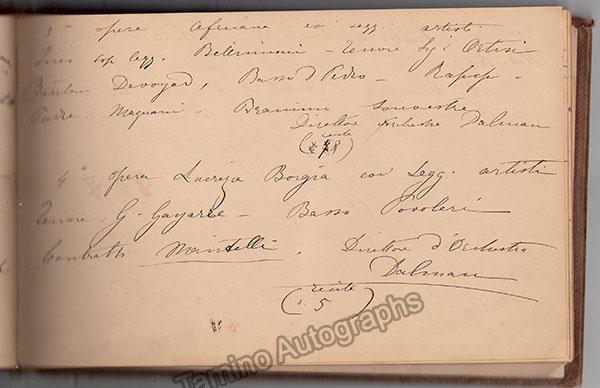 3ª opera Africana coi segg. artisti.
sop. legg. Bellincioni - Tenore Sigr Ortisi
Devoyod, Basso D. Pedro -
Magnani - Bramino Souvestre
Direttore Orchestra Dalmau
recite
( 8)
4ª opera Lucrezia Borgia coi Segg. artisti
Tenore - G. Gayarre - Basso Povoleri
Contralto Mantelli. Direttore d'Orchestra
Dalmau
recite
( 5 )
Tamino Autographs